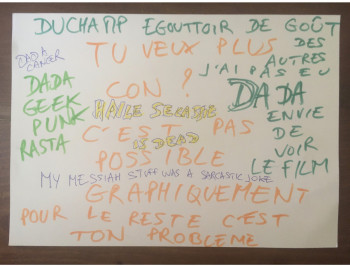 DUCHAMP EGOUTTOIR DE GOÛT
DES
AUTRES
TU VEUX PLUS
DADA
CANCER
J'AI PAS EU
CON ?
DADA
DADA
GEEK
PUNK
RASTA
HAILE SELASSIE
IS DEAD
ENVIE
DE
VOIR
LE FILM
C'EST PAS
POSSIBLE
MY MESSIAH STUFF WAS A SARCASTIC JOKE
GRAPHIQUEMENT
POUR LE RESTE C'EST
TON PROBLEME